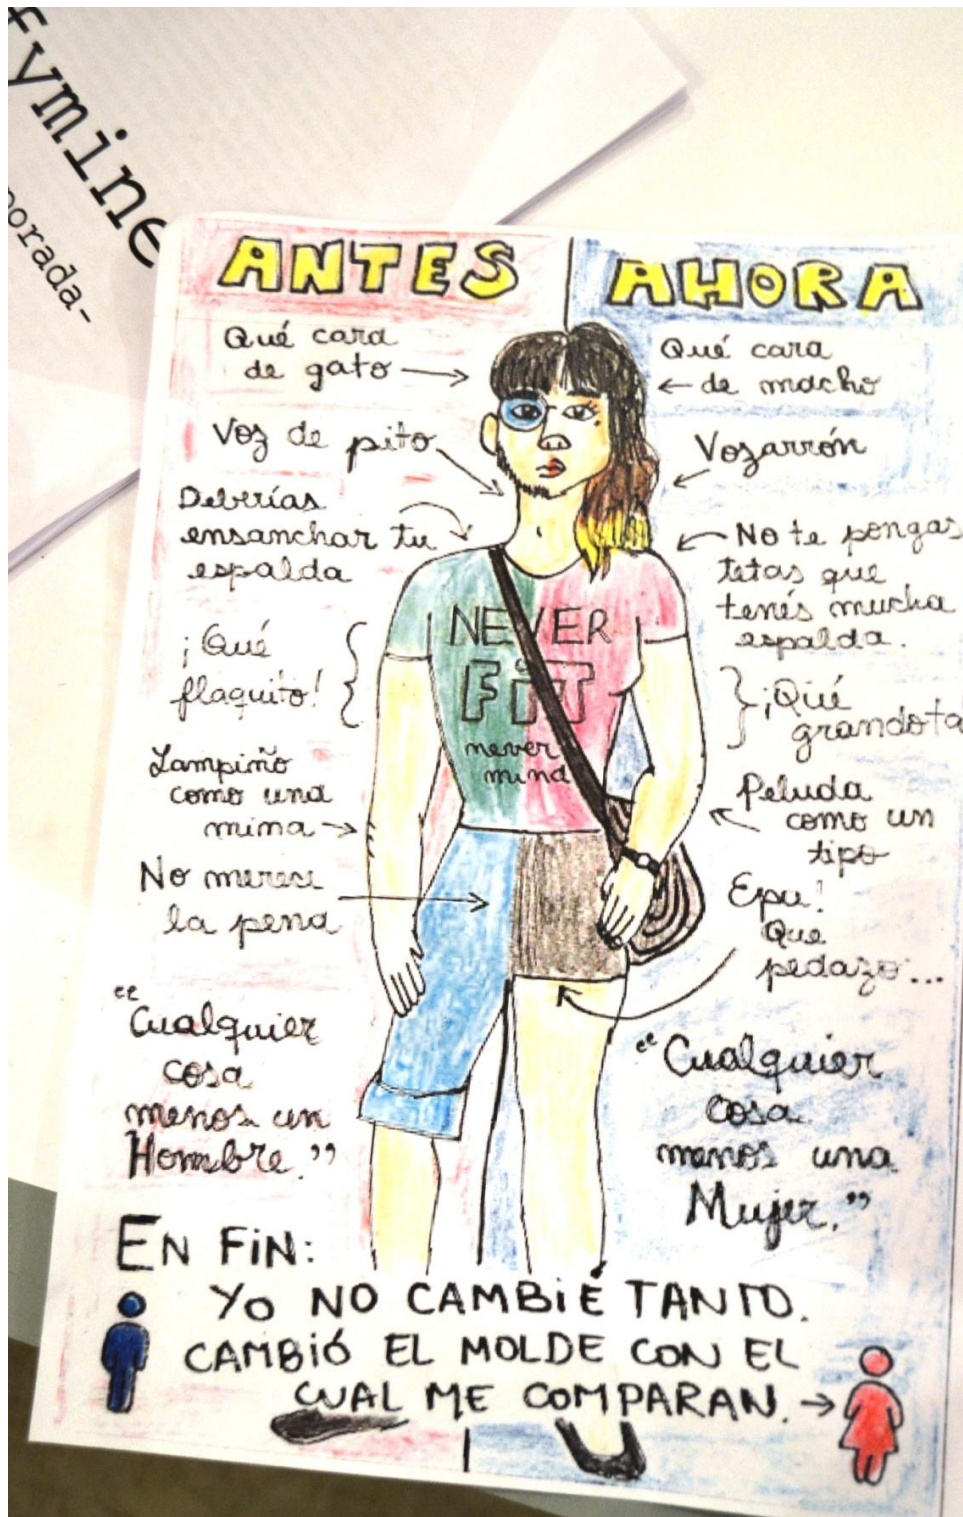 fymine
porada-
ANTES
Qué cara
de gato
Voz de pito
Deberías
ensanchar tu
espalda
¡Qué
flaquito!
Lampiño
como una
mina
No merece
la pena
"Cualquier
cosa
menos un
Hombre."
AHORA
Qué cara
de macho
Vozarrón
No te pongas
tetas que
tenés mucha
espalda.
¡Qué
grandota
Peluda
como un
tipo
Epa!
Que
pedazo...
"Cualquier
cosa
menos una
Mujer."
NEVER
FiT
never
mind
EN FiN:
YO NO CAMBiÉ TANTO.
CAMBIÓ EL MOLDE CON EL
CUAL ME COMPARAN.